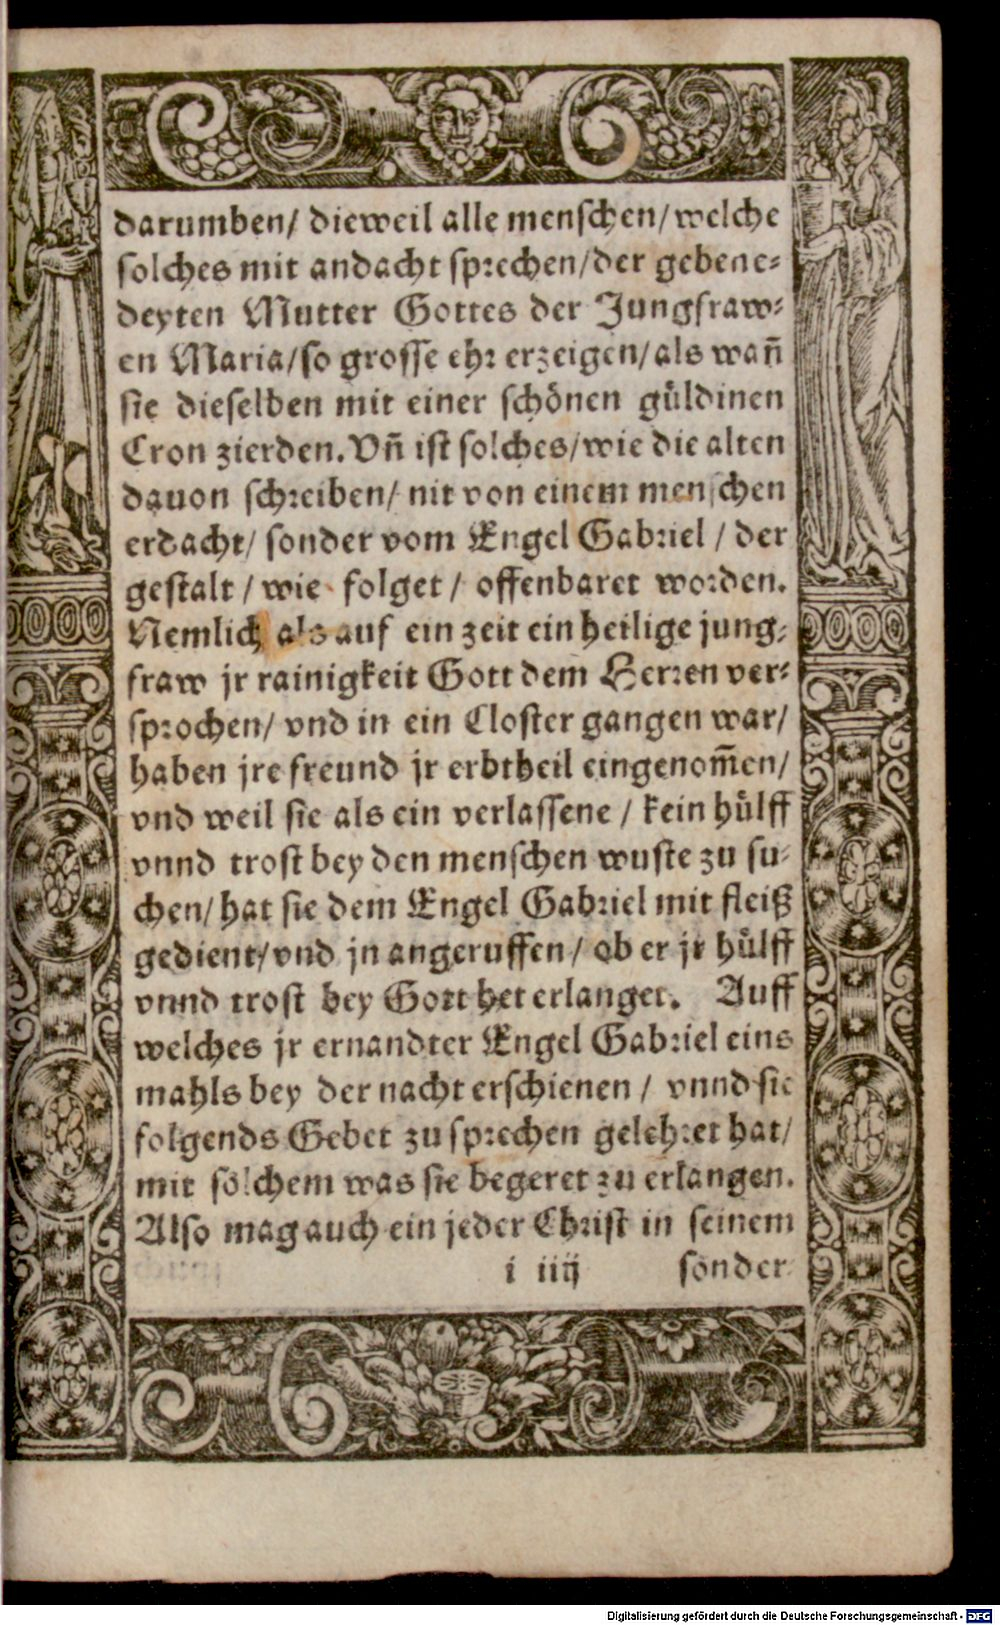 darumben/ dieweil alle menschen/ welche
solches mit andacht sprechen/ der gebene-
deyten Mutter Gottes der Jungfraw-
en Maria/ so grosse ehr erzeigen/ als wañ
sie dieselben mit einer schönen güldinen
Cron zierden. Vñ ist solches/ wie die alten
dauon schreiben/ nit von einem menschen
erdacht/ sonder vom Engel Gabriel / der
gestalt / wie folget / offenbaret worden.
Nemlich als auf ein zeit ein heilige jung-
fraw jr rainigkeit Gott dem Herren ver-
sprochen/ vnd in ein Closter gangen war/
haben jre freund jr erbtheil eingenom̃en/
vnd weil sie als ein verlassene / kein hülff
vnnd trost bey den menschen wuste zu su-
chen/ hat sie dem Engel Gabriel mit fleiß
gedient/ vnd jn angeruffen / ob er jr hülff
vnnd trost bey Gott het erlanget. Auff
welches jr ernandter Engel Gabriel eins
mahls bey der nacht erschienen / vnnd sie
folgends Gebet zu sprechen gelehret hat/
mit solchem was sie begeret zu erlangen.
Also mag auch ein jeder Christ in seinem
i iiij sonder
Digitalisierung gefördert durch die Deutsche Forschungsgemeinschaft - DFG